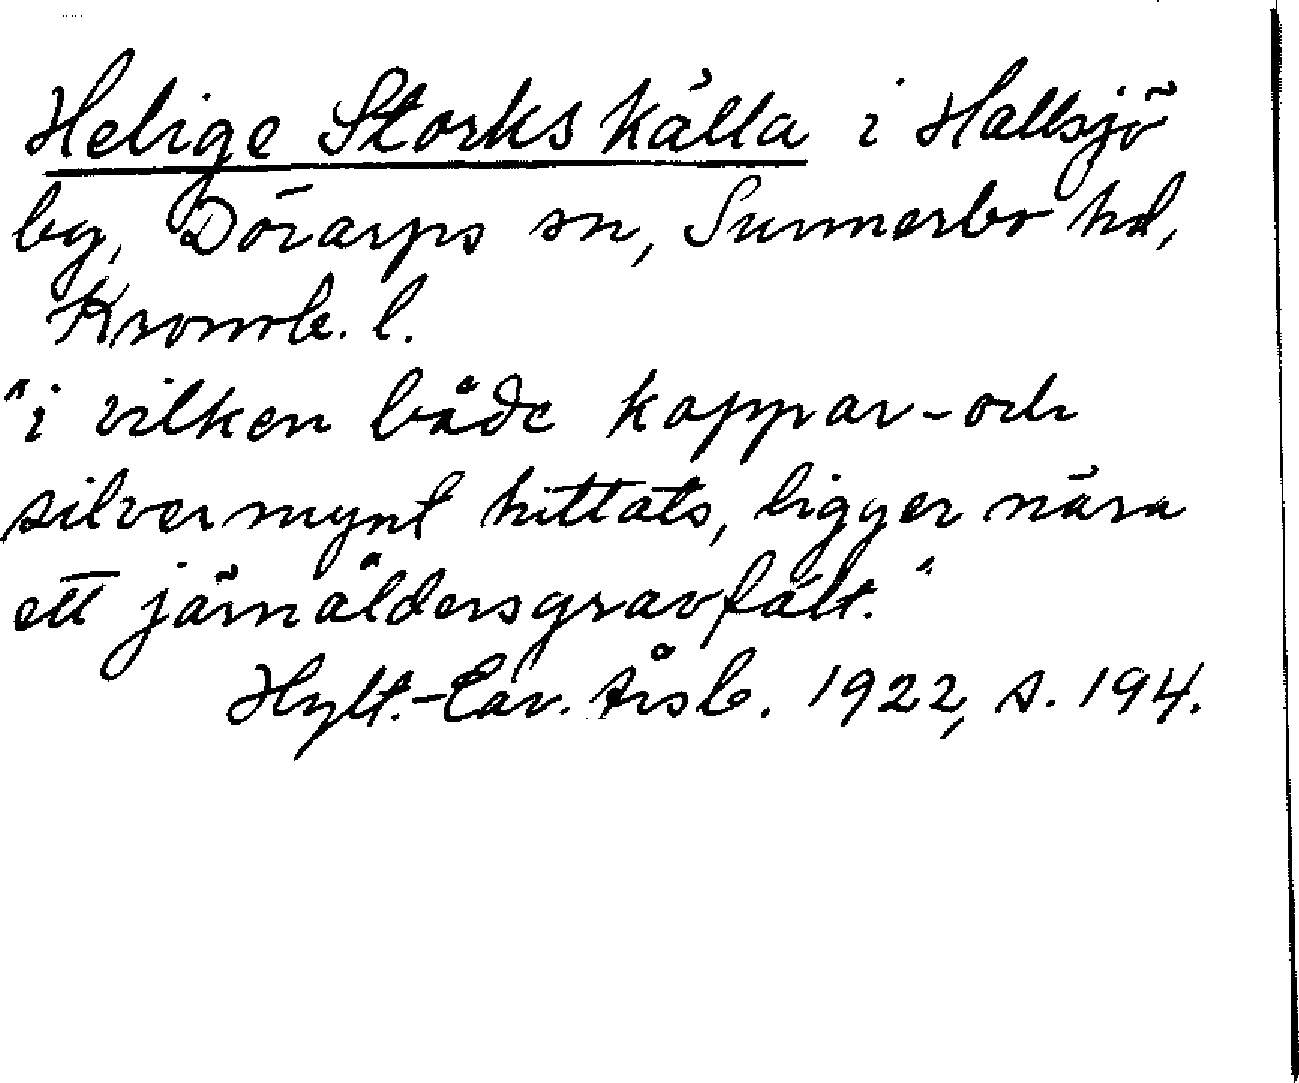 Helige Storks källa i Hallsjö
by, Dörarps sn, Sunnerbo hd,
Kronob. l.
"i vilken både koppar- och
silvermynt hittats, ligger nära
ett järnåldersgravfält."
Hylt.-Cav. Årsb. 1922, s. 194.